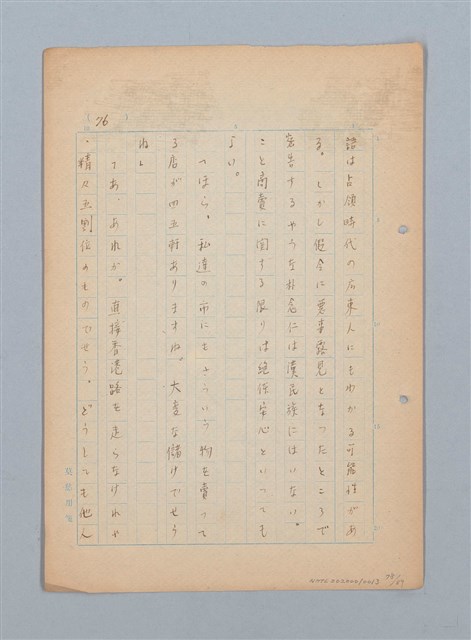 76
語は占領時代の広東人にもわかる可能性があ
る。しかし仮令に悪事露見となつたところで
密告するやうな朴念には漢民族にはいない。
こと商賣に関する限りは絶体安心といつても
よい。
「ほら、私達の市にもさういう物を賣つて
る店が四五軒ありますね。大変な儲けでせう
ね」
「あゝ、あれか。直接香港路を走らなければ
、精々五割位のものでせう。どうしても他人